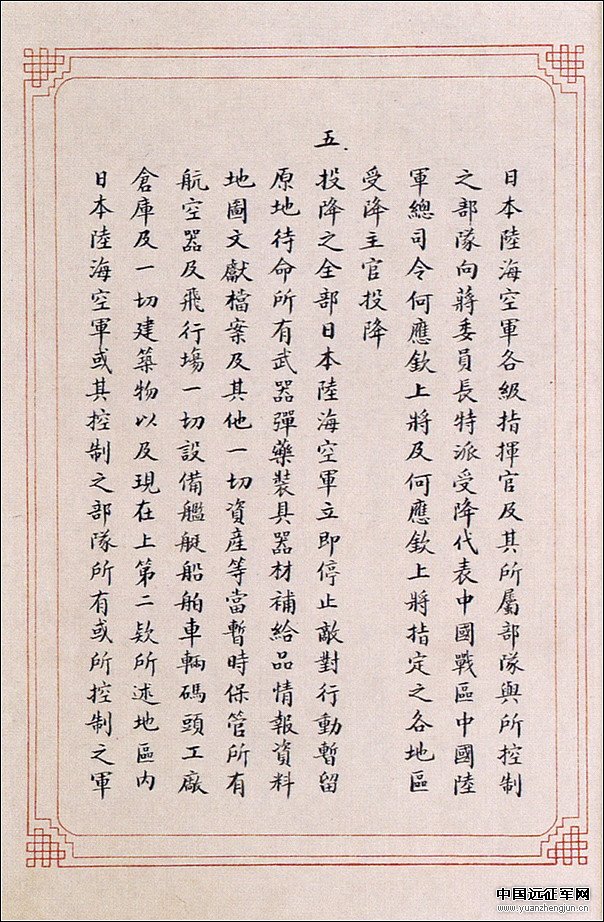 日本陸海空軍各級指揮官及其所屬部隊與所控制
之部隊向蔣委員長特派受降代表中國戰區中國陸
軍總司令何應欽上將及何應欽上將指定之各地區
受降主官投降
五.
投降之全部日本陸海空軍立即停止敵對行動暫留
原地待命所有武器彈藥裝具器材補給品情報資料
地圖文獻檔案及其他一切資產等當暫時保管所有
航空器及飛行場一切設備艦艇船舶車輛碼頭工廠
倉庫及一切建築物以及現在上第二欵所述地區內
日本陸海空軍或其控制之部隊所有或所控制之軍
中国远征军网
www.yuanzhengjun.cn